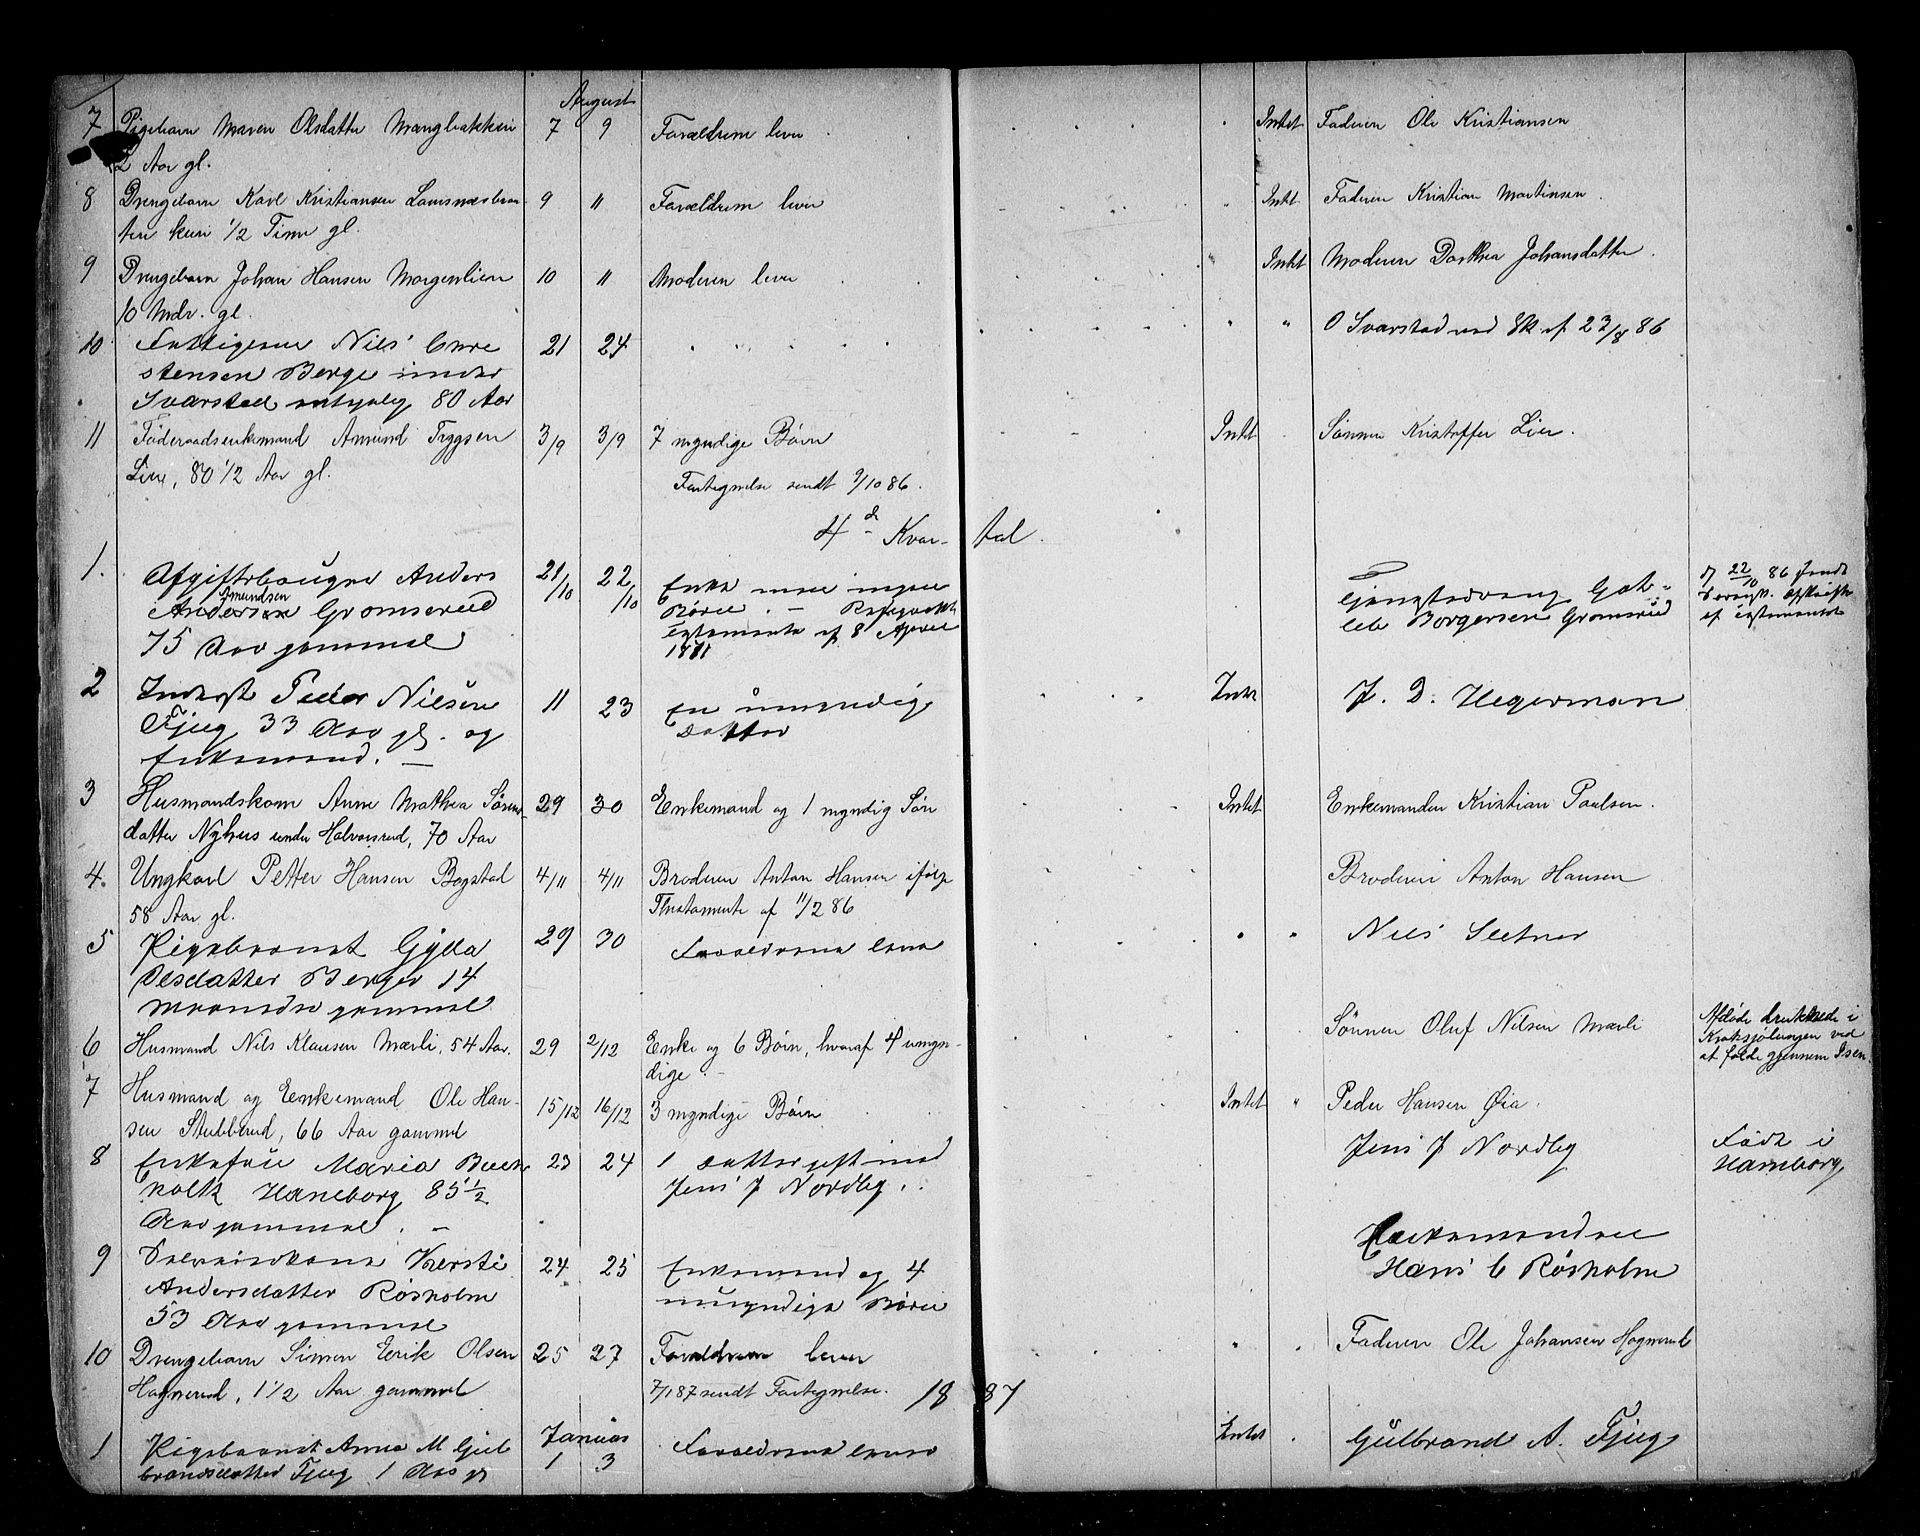 August
7 Pigebarn Maren Olsdatter Mangbakken 7 9 Forældrene lever Intet Faderen Ole Kristiansen
2 Aar gl.
8 Drengebarn Karl Kristiansen 9 11 Forældrene lever Intet Faderen Kristian Martinsen
kun 1/2 Time gl.
9 Drengebarn Johan Hansen Morgenlien 10 11 Moderen lever Intet Moderen Dorthea Johansdatter
10 Mdr. gl.
10 Nils 21 24 " O Svarstad ved Sk af 23/8 86
stensen Berge under
Svarstad 80 Aar
11 Føderaadsenkemand Amund Tryggsen 3/9 3/9 7 myndige Børn Intet Sønnen Kristoffer Lier.
Lier, 80 1/2 Aar gl.
Fortegnelse sendt 9/10 86.
4de Kvar- tal.
1. Anders 21/10 22/10 Enke men ingen
Amundsen
Andersen Gromsrud Børn. —
75 Aar gammel testamente af 8 April
lib Borgersen Gromsrud
af testamentet
2 Inderst Peder Nilsen 11 23 En umyndig Intet J. D. Hegerman
Fjug 33 Aar gl. og Datter
Enkemand. —
3 Husmandskone Anne Mathea Søren- 29 30 Enkemand og 1 myndig Søn Intet Enkemanden Kristian Paulsen.
datter Nyhus under Halvorsrud, 70 Aar
4. Ungkarl Petter Hansen Bogstad 4/11 4/11 Broderen Anton Hansen ifølge Broderen Anton Hansen
58 Aar gl. Thestamente af 11/2 86
5 Pigebarnet Gylla 29 30 Forældrene lever " Nils Sletner
Olsdatter Berger 14
Maaneder gammel
6 Husmand Nils Klausen Mærli, 54 Aar. 29 2/12 Enke og 6 Børn, hvoraf 4 umyn- Sønnen Oluf Nilsen Mærli Afdøde druknede i
dige. Kroksjølungen ved
at falde gjennem Isen
7 Husmand og Enkemand Ole Han- 15/12 16/12 3 myndige Børn Intet " Peder Hansen Øia.
sen Stubberud, 66 Aar gammel
8 Enkefru Maria Buck 23 24 1 Datter gift med Jens J Nordby Født i
holtz Haneborg 85 1/2 Jens J Nordby. Haneborg
Aar gammel. —
9 Kersti 24 25 Enkemand og 4 Enkemanden
Andersdatter Røsholm umyndige Børn Hans C Røsholm
53 Aar gammel
10 Drengebarn Simon Eerik Olsen 25 27 Forældrene lever " Faderen Ole Johansen Hognerud
Hognerud, 1 1/2 Aar gammel 7/1 87 sendt Fortegnelse. 18 87
Januar
1 Pigebarnet Anna M Gul 1 3 Forældrene lever Intet Gulbrand A. Fjug
brandsdatter Fjug 1 Aar gl